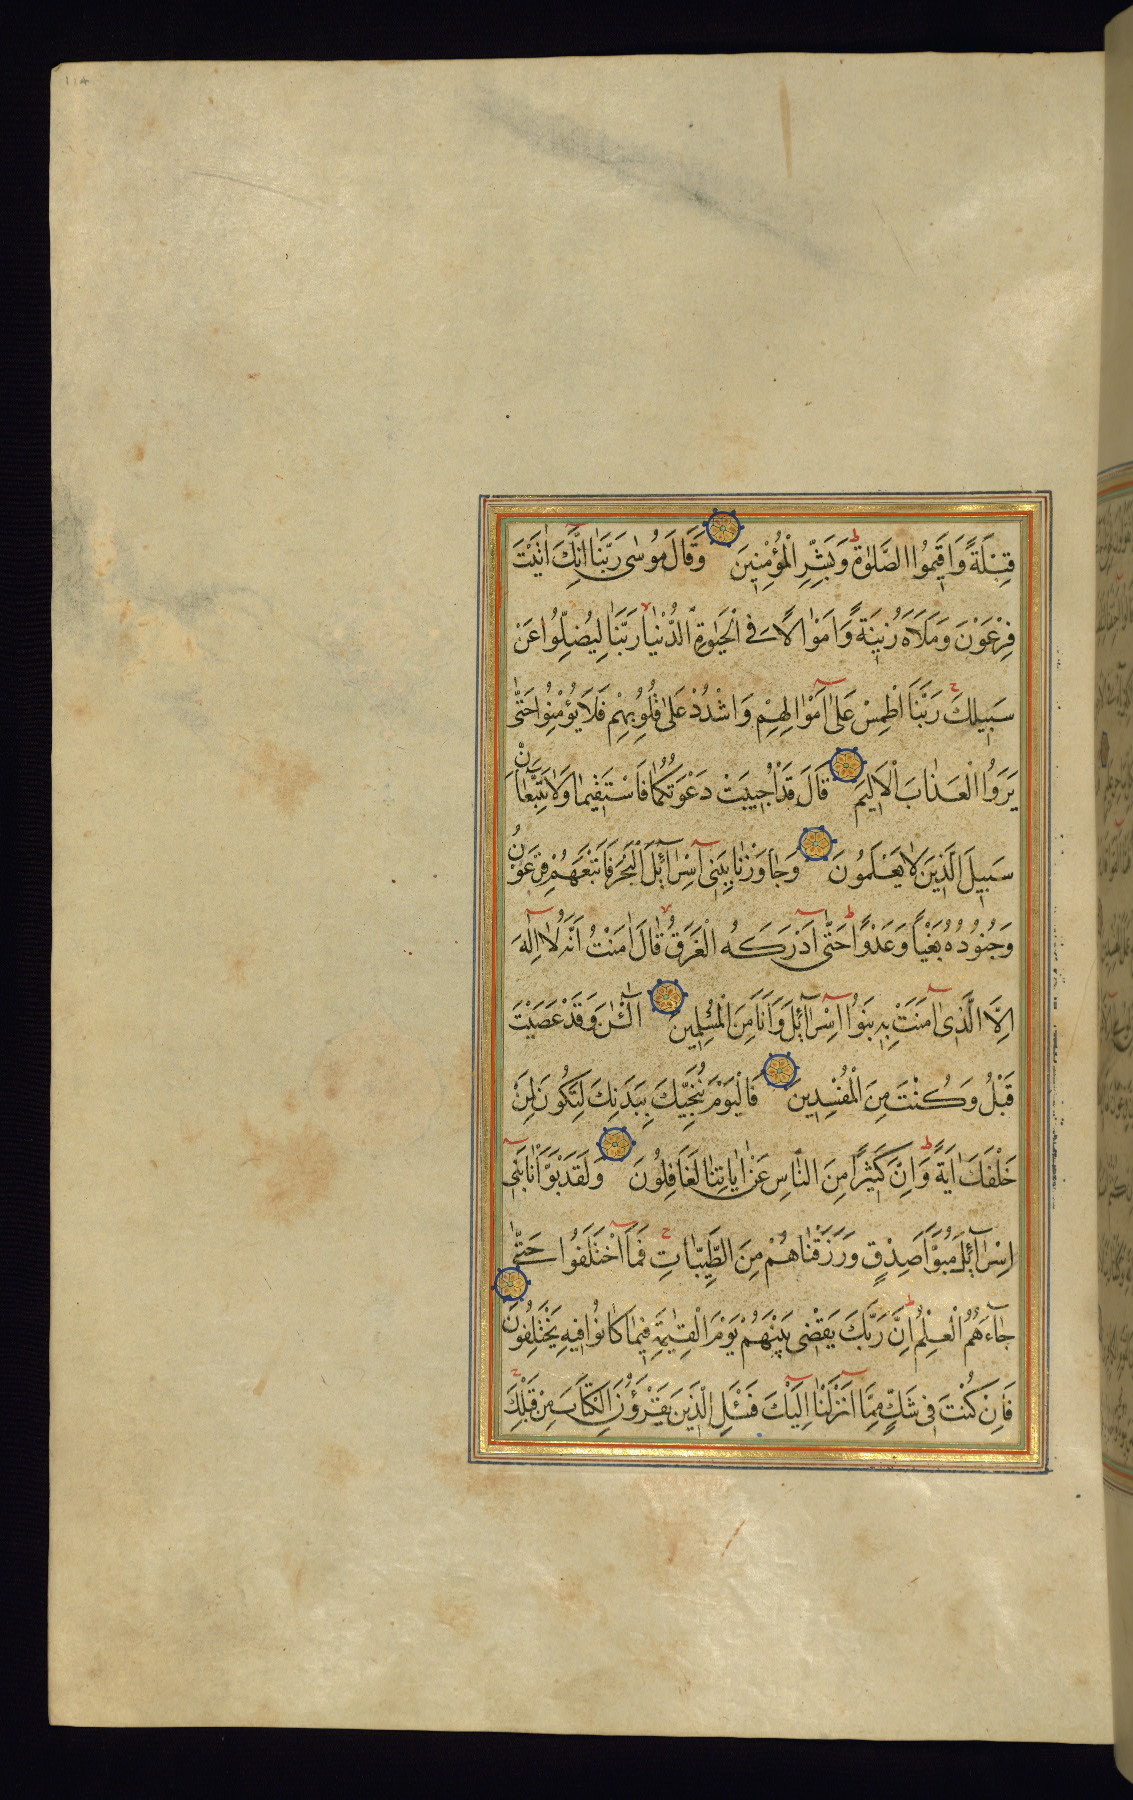 ١١٤
قِبْلَةً وَاَقِيمُوا الصَّلٰوةَ وَبَشِّرِ الْمُؤْمِنِينَ وَقَالَ مُوسٰى رَبَّنَا اِنَّكَ اٰتَيْتَ
فِرْعَوْنَ وَمَلَاَهُ زِينَةً وَاَمْوَالًا فِى الْحَيٰوةِ الدُّنْيَا رَبَّنَا لِيُضِلُّوا عَنْ
سَبِيلِكَ رَبَّنَا اطْمِسْ عَلٰى اَمْوَالِهِمْ وَاشْدُدْ عَلٰى قُلُوبِهِمْ فَلَا يُؤْمِنُوا حَتّٰى
يَرَوُا الْعَذَابَ الْاَلِيمَ قَالَ قَدْ اُجِيبَتْ دَعْوَتُكُمَا فَاسْتَقِيمَا وَلَا تَتَّبِعَانِّ
سَبِيلَ الَّذِينَ لَا يَعْلَمُونَ وَجَاوَزْنَا بِبَنِى اِسْرَآئِلَ الْبَحْرَ فَاَتْبَعَهُمْ فِرْعَوْنُ
وَجُنُودُهُ بَغْيًا وَعَدْوًا حَتّٰى اِذَا اَدْرَكَهُ الْغَرَقُ قَالَ اٰمَنْتُ اَنَّهُ لَا اِلٰهَ
اِلَّا الَّذِى اٰمَنَتْ بِهِ بَنُوا اِسْرَآئِلَ وَاَنَا مِنَ الْمُسْلِمِينَ آلْـٰٔنَ وَقَدْ عَصَيْتَ
قَبْلُ وَكُنْتَ مِنَ الْمُفْسِدِينَ فَالْيَوْمَ نُنَجِّيكَ بِبَدَنِكَ لِتَكُونَ لِمَنْ
خَلْفَكَ اٰيَةً وَاِنَّ كَثِيرًا مِنَ النَّاسِ عَنْ اٰيَاتِنَا لَغَافِلُونَ وَلَقَدْ بَوَّاْنَا بَنِى
اِسْرَآئِلَ مُبَوَّاَ صِدْقٍ وَرَزَقْنَاهُمْ مِنَ الطَّيِّبَاتِ فَمَا اخْتَلَفُوا حَتّٰى
جَآءَهُمُ الْعِلْمُ اِنَّ رَبَّكَ يَقْضِى بَيْنَهُمْ يَوْمَ الْقِيٰمَةِ فِيمَا كَانُوا فِيهِ يَخْتَلِفُونَ
فَاِنْ كُنْتَ فِى شَكٍّ مِمَّا اَنْزَلْنَا اِلَيْكَ فَسْئَلِ الَّذِينَ يَقْرَؤُنَ الْكِتَابَ مِنْ قَبْلِكَ